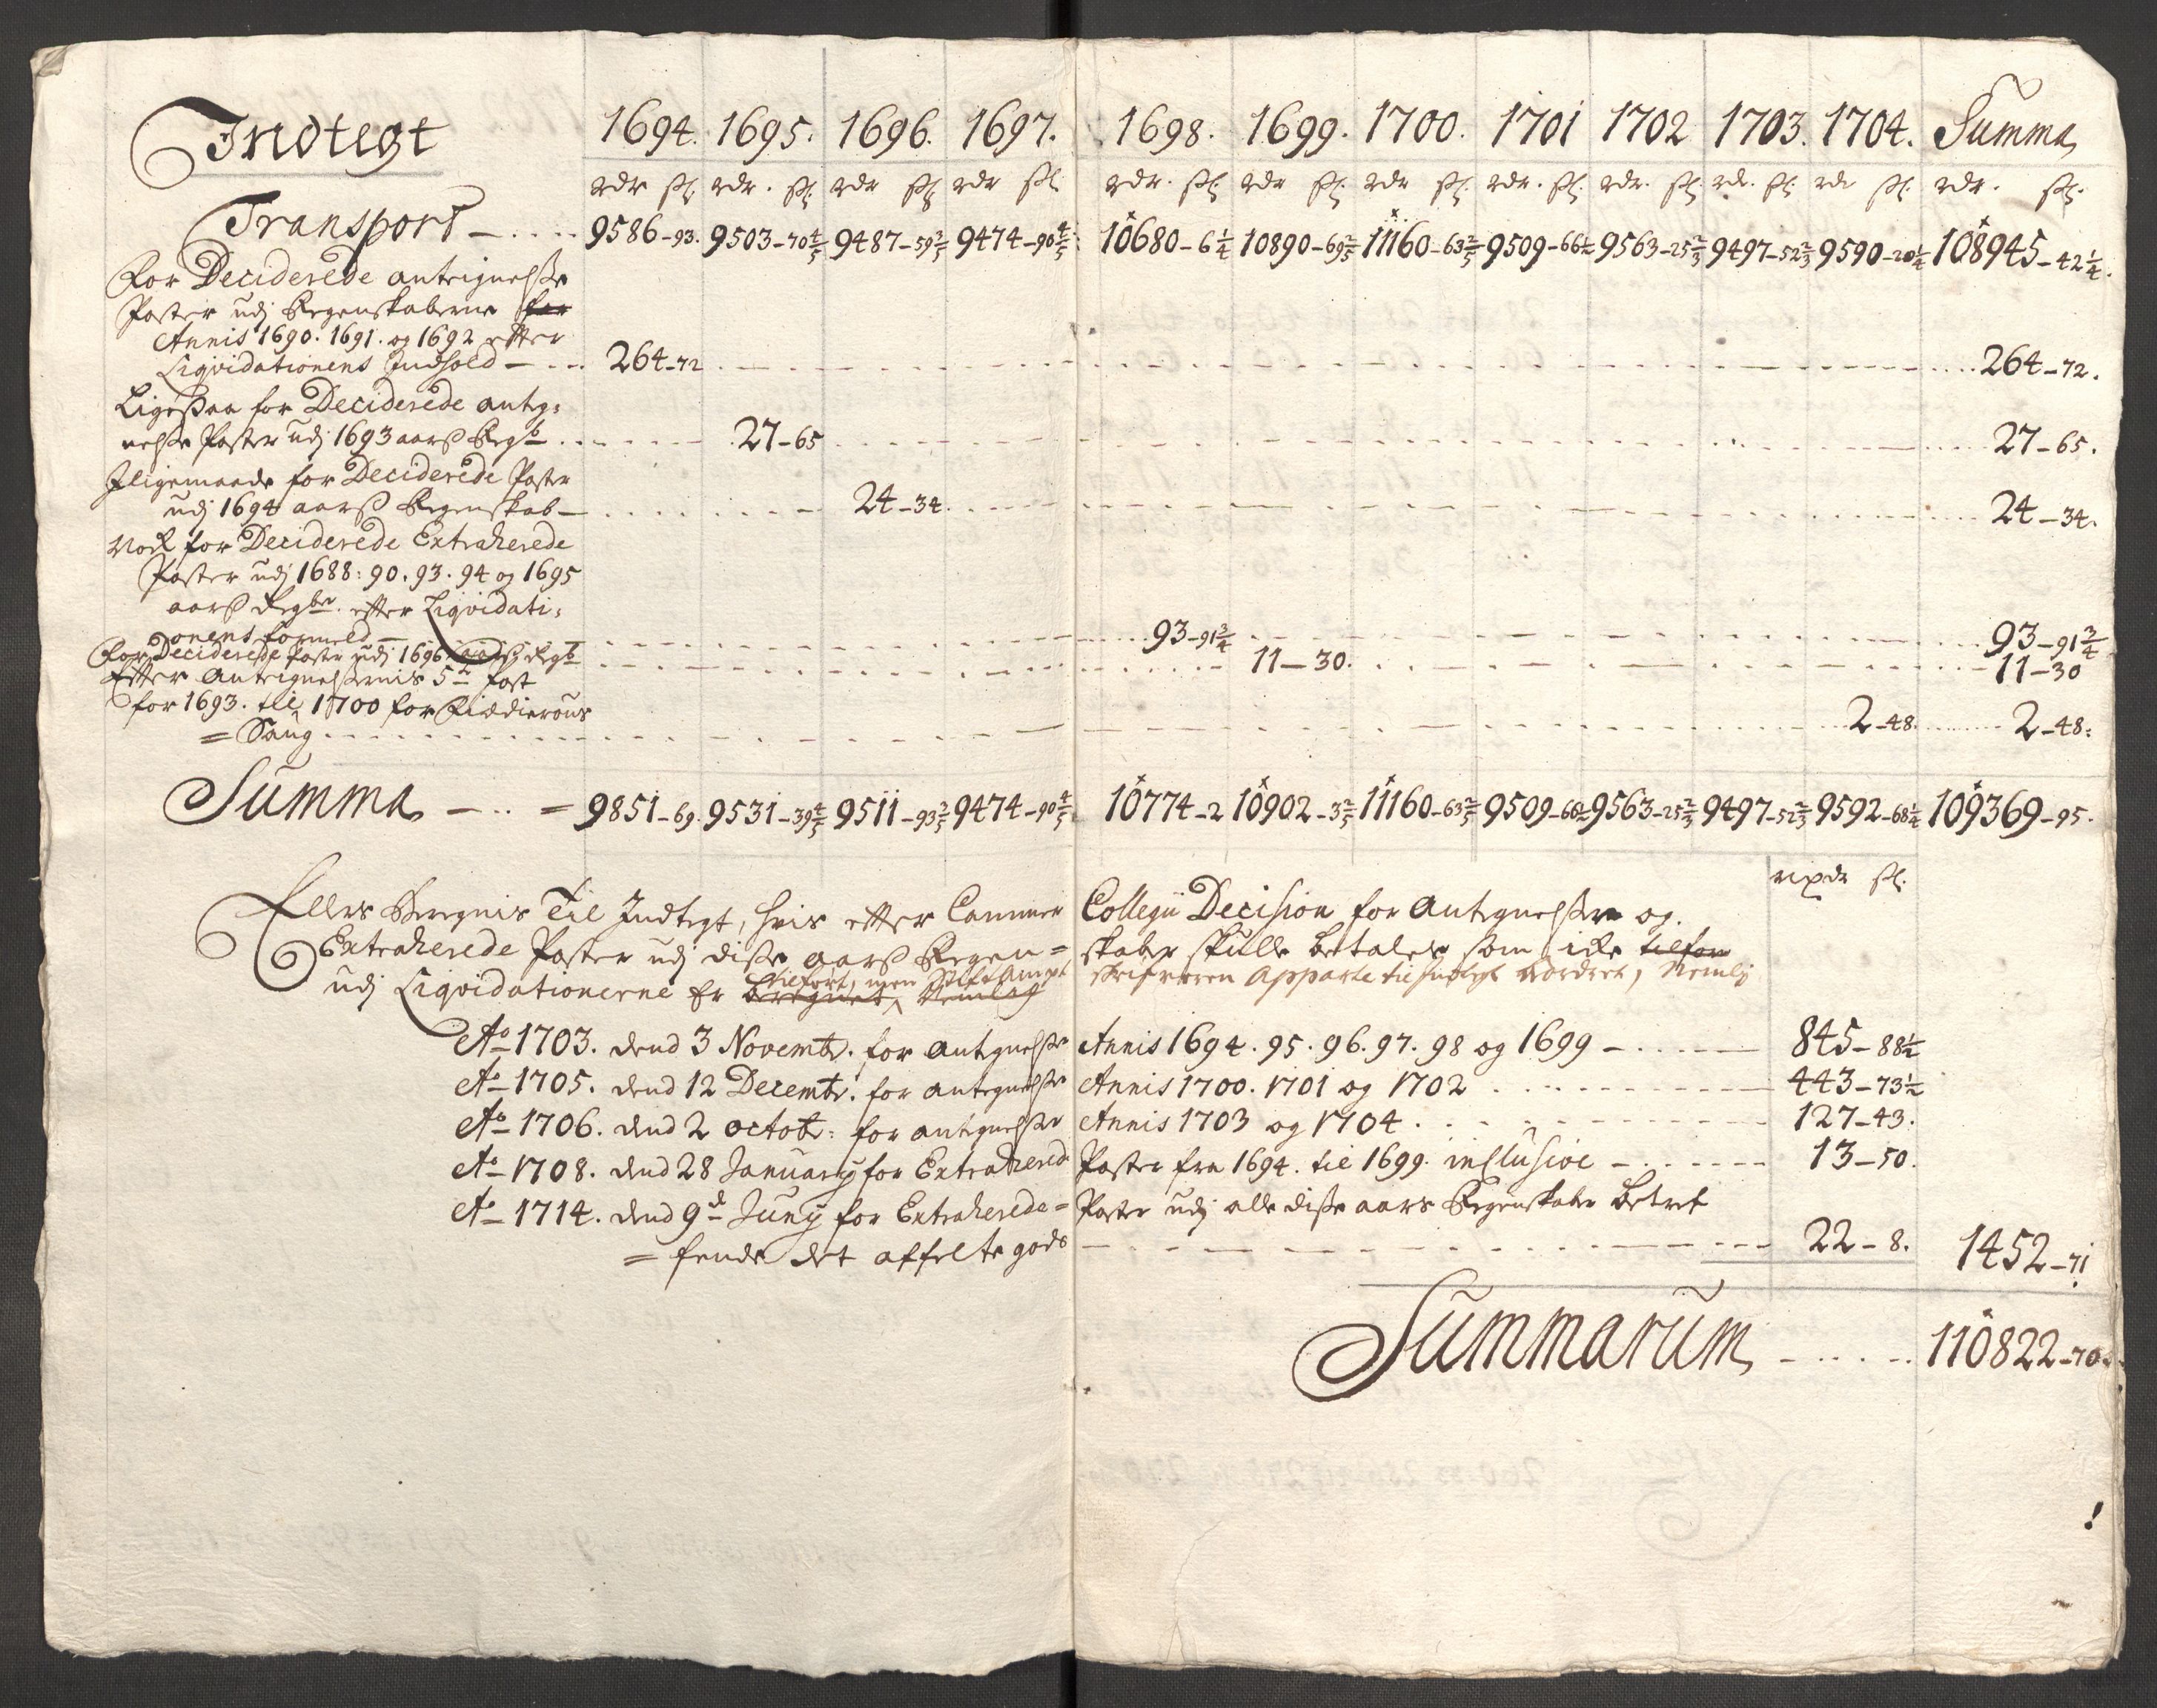 Indtegt 1694. 1695. 1696. 1697. 1698. 1699. 1700. 1701 1702 1703. 1704. Summa
rdr ſh. rdr. ſh. rdr ſh rdr ſh. rdr. ſh. rdr ſh. rdr ſh. rdr. ſh. rdr. ſh. rdr. ſh. rdr ſh. rdr. ſh.
Transport — .... 9586-93. 9503-70 4/5 9487-59 2/5 9474-90 4/5 10680-6 1/4 10890-69 2/5 11160-63 2/5 9509-66 1/2 9563-25 2/3 9497-52 2/3 9590-20 1/4 108945-42 1/4.
For Deciderede anteignelsse
Poster udj Regenskaberne for
Annis 1690. 1691. og 1692 efter
Liqvidationens Indhold — ... 264-72 264-72.
Ligesaa for Deciderede anteg=
nelsse Poster udj 1693 aarß Regb. 27-65 27-65.
Jligemaade for Deciderede Poster
udj 1694 aarß Regenskab — 24-34. 24-34.
Nock for Deciderede Extraherede
Poster udj 1688: 90. 93. 94 og 1695
aarß Regber. efter Liqvidati=
onens formeld — 93-91 3/4 93-91 3/4
For Deciderede Poster udj 1696 aarß Regb 11-30. 11-30
Efter Anteignelssernis 5te Post
for 1693. til 1700 for
= Saug 2-48. 2-48:
Summa — .. = 9851-69. 9531-39 4/5 9511-93 2/5 9474-90 4/5 10774-2 10902-3 2/5 11160-63 2/5 9509-66 1/2 9563-25 2/3 9497-52 2/3 9592-68 1/4 109369-95.
rixdr ſh.
Ellers Beregnis Til Indtegt, hvis efter Cammer Collegii Decision for Antegnelsser og
Extraherede Poster udj disse aarß Regen= skaber skulle betales som icke tilfor
tilført, men Stiftampt skrifveren apparte til indtegt vordret, Nemlig
udj Liqvidationerne Er beregnet, Nemlig
Ao 1703. dend 3 Novembr. for antegnelsse Annis 1694. 95. 96. 97. 98 og 1699 — 845-88 1/2
Ao 1705. dend 12 Decembr. for antegnelsse Annis 1700. 1701 og 1702 443-73 1/2
Ao 1706. dend 2 octobr: for antegnelsse Annis 1703 og 1704. 127-43.
Ao 1708. dend 28 January for Extraherede Poster fra 1694. til 1699. inclusive — 13-50.
Ao 1714. dend 9de Juny for Extraherede = Poster udj alle disse aars Regenskaber betref
= fende det affelte gods 22-8. 1452-71
Summarum — .... 110822-70.